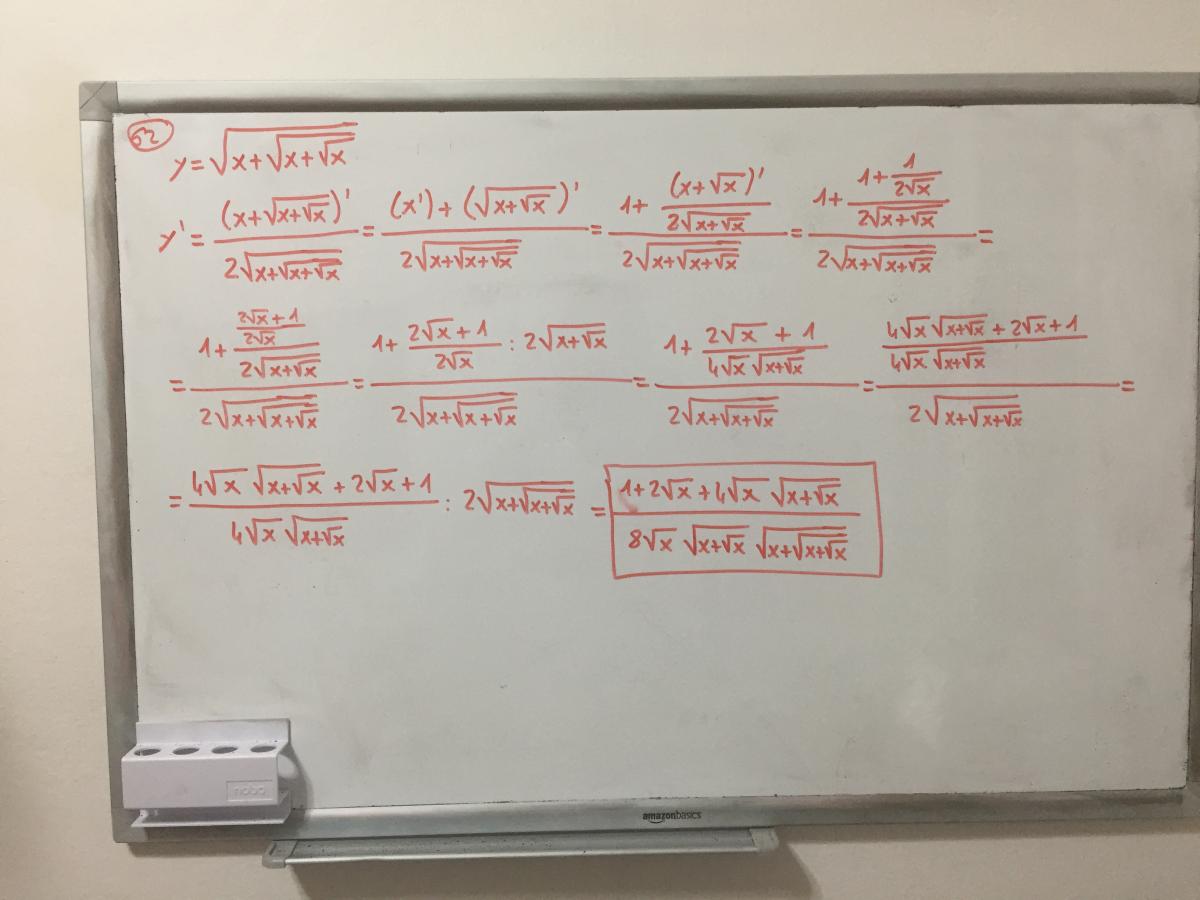 52
y = √(x+√(x+√x))
y' = (x+√(x+√x))' / 2√(x+√(x+√x)) = ((x') + (√(x+√x))') / 2√(x+√(x+√x)) = (1 + (x+√x)' / 2√(x+√x)) / 2√(x+√(x+√x)) = (1 + (1 + 1/(2√x)) / 2√(x+√x)) / 2√(x+√(x+√x)) =
= (1 + ((2√x + 1)/(2√x)) / 2√(x+√x)) / 2√(x+√(x+√x)) = (1 + (2√x + 1)/(2√x) : 2√(x+√x)) / 2√(x+√(x+√x)) = (1 + (2√x + 1)/(4√x √(x+√x))) / 2√(x+√(x+√x)) = ((4√x √(x+√x) + 2√x + 1)/(4√x √(x+√x))) / 2√(x+√(x+√x)) =
= (4√x √(x+√x) + 2√x + 1)/(4√x √(x+√x)) : 2√(x+√(x+√x)) = (1 + 2√x + 4√x √(x+√x)) / (8√x √(x+√x) √(x+√(x+√x)))
nobo
amazonbasics